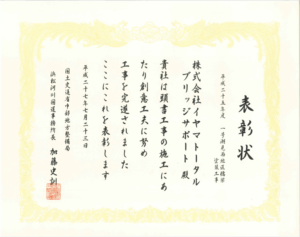 表彰状
平成二十五年度
塗装工事
株式会社イヤマトータル
ブリッジサポート 殿
貴社は頭書工事の施工にあ
たり創意工夫に努め
工事を完遂されました
ここにこれを表彰します
平成二十七年七月二十三日
国土交通省中部地方整備局
浜松河川国道事務所長